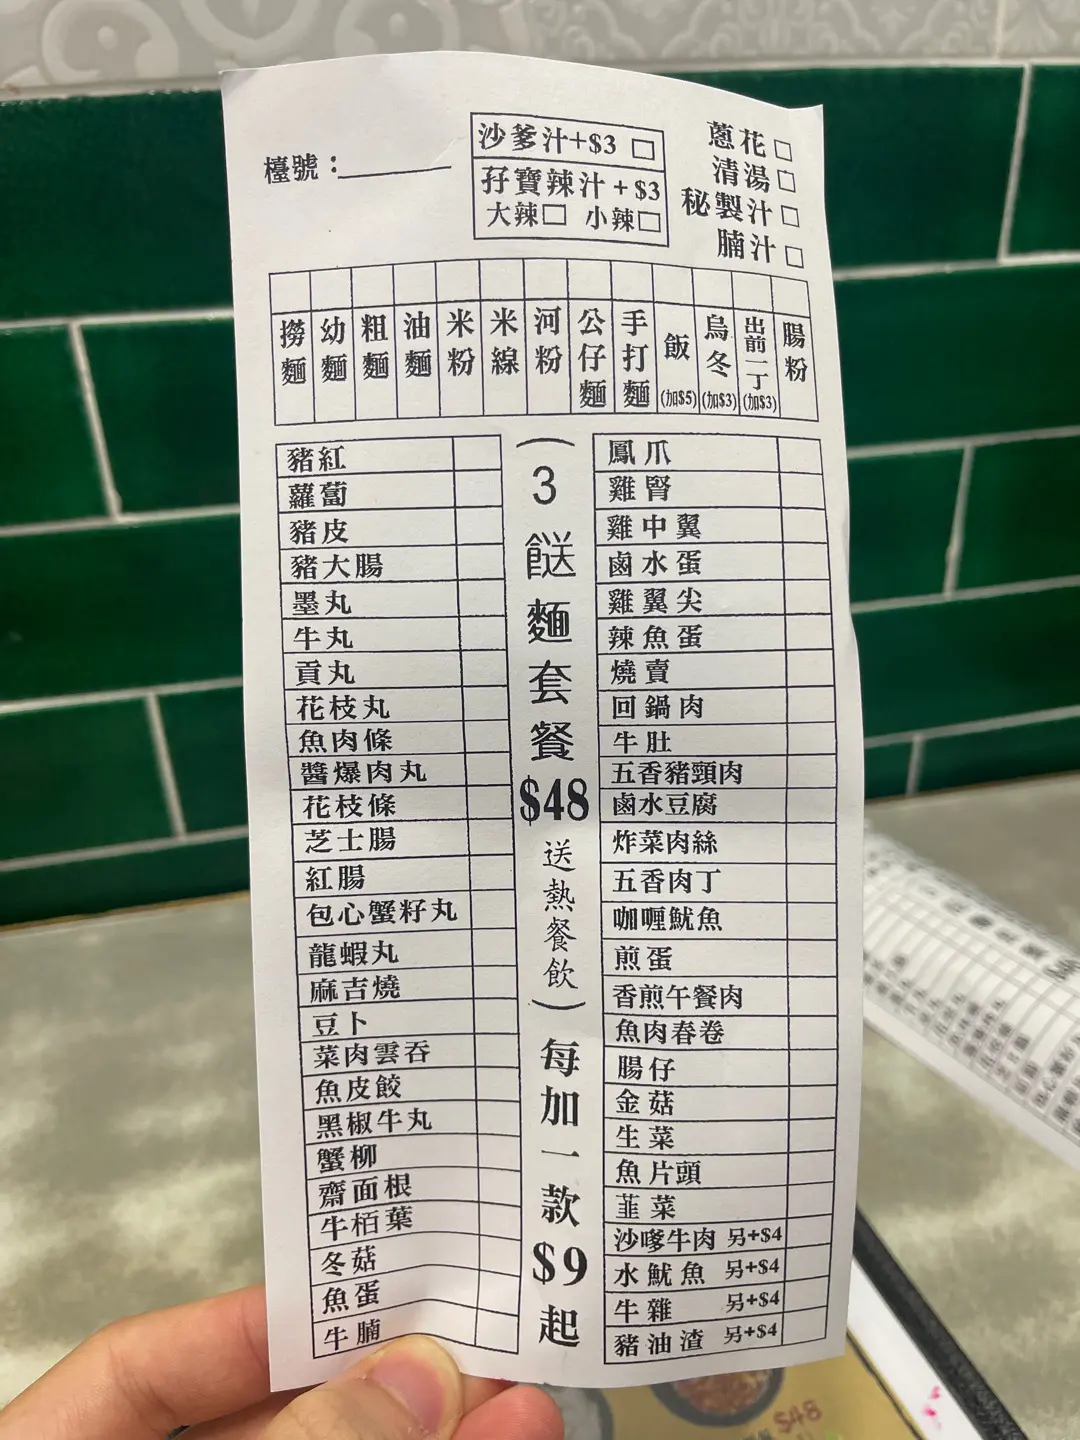 檯號：
沙爹汁+$3
孖寶辣汁+$3
大辣 小辣
蔥花
清湯
秘製汁
腩汁
撈麵
幼麵
粗麵
油麵
米粉
米線
河粉
公仔麵
手打麵
飯(加$5)
烏冬(加$3)
出前一丁(加$3)
腸粉
豬紅
蘿蔔
豬皮
豬大腸
墨丸
牛丸
貢丸
花枝丸
魚肉條
醬爆肉丸
花枝條
芝士腸
紅腸
包心蟹籽丸
龍蝦丸
麻吉燒
豆卜
菜肉雲吞
魚皮餃
黑椒牛丸
蟹柳
齋面根
牛栢葉
冬菇
魚蛋
牛腩
(3餸麵套餐
$48
送熱餐飲)
每加一款
$9
起
鳳爪
雞腎
雞中翼
鹵水蛋
雞翼尖
辣魚蛋
燒賣
回鍋肉
牛肚
五香豬頸肉
鹵水豆腐
炸菜肉絲
五香肉丁
咖喱魷魚
煎蛋
香煎午餐肉
魚肉春卷
腸仔
金菇
生菜
魚片頭
韮菜
沙嗲牛肉 另+$4
水魷魚 另+$4
牛雜 另+$4
豬油渣 另+$4
$48